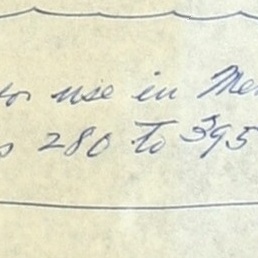 for use in Me
280 to 395